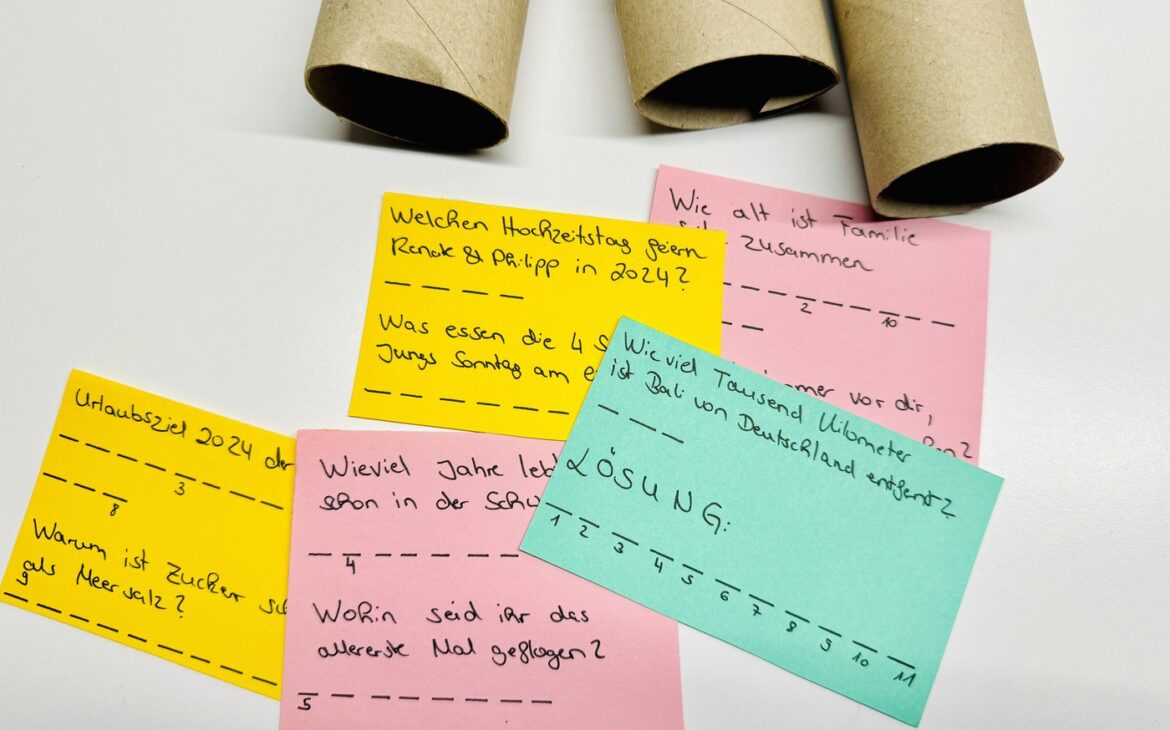 Welchen Hochzeitstag feiern
Renate & Philipp in 2024?
Was essen die 4
Jungs Sonntag am
Wie alt ist Familie
zusammen
2 10
immer vor dir,
Wie viel Tausend Kilometer
ist Bali von Deutschland entfernt?
LÖSUNG:
1 2 3 4 5 6 7 8 9 10 11
Urlaubsziel 2024 der
3
8
Warum ist Zucker
als Meersalz?
9
Wieviel Jahre
schon in der
4
Wohin seid ihr das
allererste Mal geflogen?
5